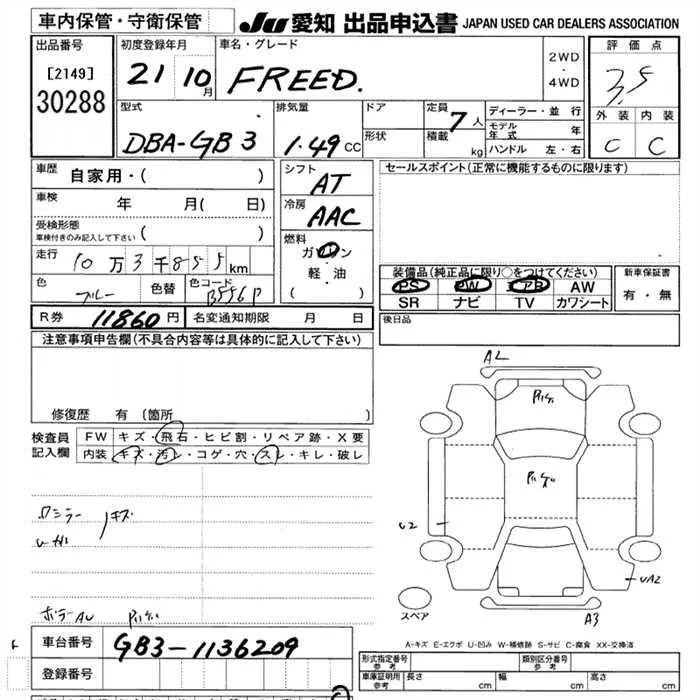 車内保管・守衛保管
JU 愛知 出品申込書 JAPAN USED CAR DEALERS ASSOCIATION
出品番号
[2149]
30288
初度登録年月
21 10月
車名・グレード
FREED.
2WD
・
4WD
評価点
3.5
外装 内装
C C
型式
DBA-GB3
排気量
1.49 CC
ドア
形状
定員 7人
積載 kg
ディーラー・並行
モデル年式 年
ハンドル 左・右
車歴
自家用・( )
車検 年 月( 日)
受検形態
車検付きのみ記入して下さい ( )
走行 10万3千855km
色 ブルー 色替 色コード B556P
シフト
AT
冷房
AAC
燃料
ガソリン
軽・油
( )
セールスポイント(正常に機能するものに限ります)
装備品(純正品に限り○をつけてください)
PS PW エアB AW
SR ナビ TV カワシート
新車保証書
有・無
R券 11860円 名変通知期限 月 日
後日品
注意事項申告欄(不具合内容等は具体的に記入して下さい)
修復歴 有(箇所 )
検査員記入欄
FW キズ・飛石・ヒビ割・リペア跡・X要
内装 キズ・汚レ・コゲ・穴・スレ・キレ・破レ
キズ
A2
U2
UA2
A3
スペア
A-キズ E-エクボ U-凹み W-補修跡 S-サビ C-腐食 XX-交換済
車台番号 GB3-1136209
登録番号
形式指定番号 参考
類別区分番号 参考
車庫証明用 参考 長さ cm 幅 cm 高さ cm